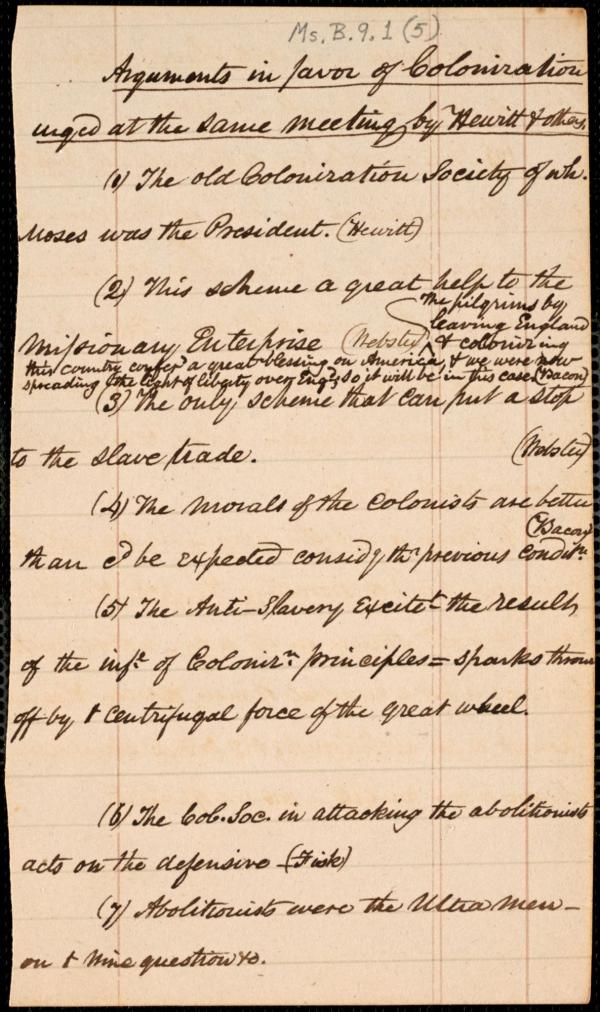 Ms. B. 9. 1 (5)
Arguments in favor of Colonization
urged at the same meeting by Hewitt & others.
(1) The old Colonization Society of wh.
Moses was the President. (Hewitt)
(2) This scheme a great help to the
Missionary Enterprise (Webster)
The pilgrims by
leaving England
& colonizing
this country confer'd a great blessing on America, & we were now
spreading the light of liberty over Engd, so it will be in this case (Bacon)
(3) The only scheme that can put a stop
to the slave trade. (Webster)
(4) The morals of the colonists are better
than cd be expected considg thr previous conditn. (Bacon)
(5) The Anti-Slavery Excitet the result
of the infe. of Colonizn. principles = sparks thrown
off by t centrifugal force of the great wheel.
(6) The Col. Soc. in attacking the abolitionists
acts on the defensive - (Fisk)
(7) Abolitionists were the Ultra men -
on t wine question &c.